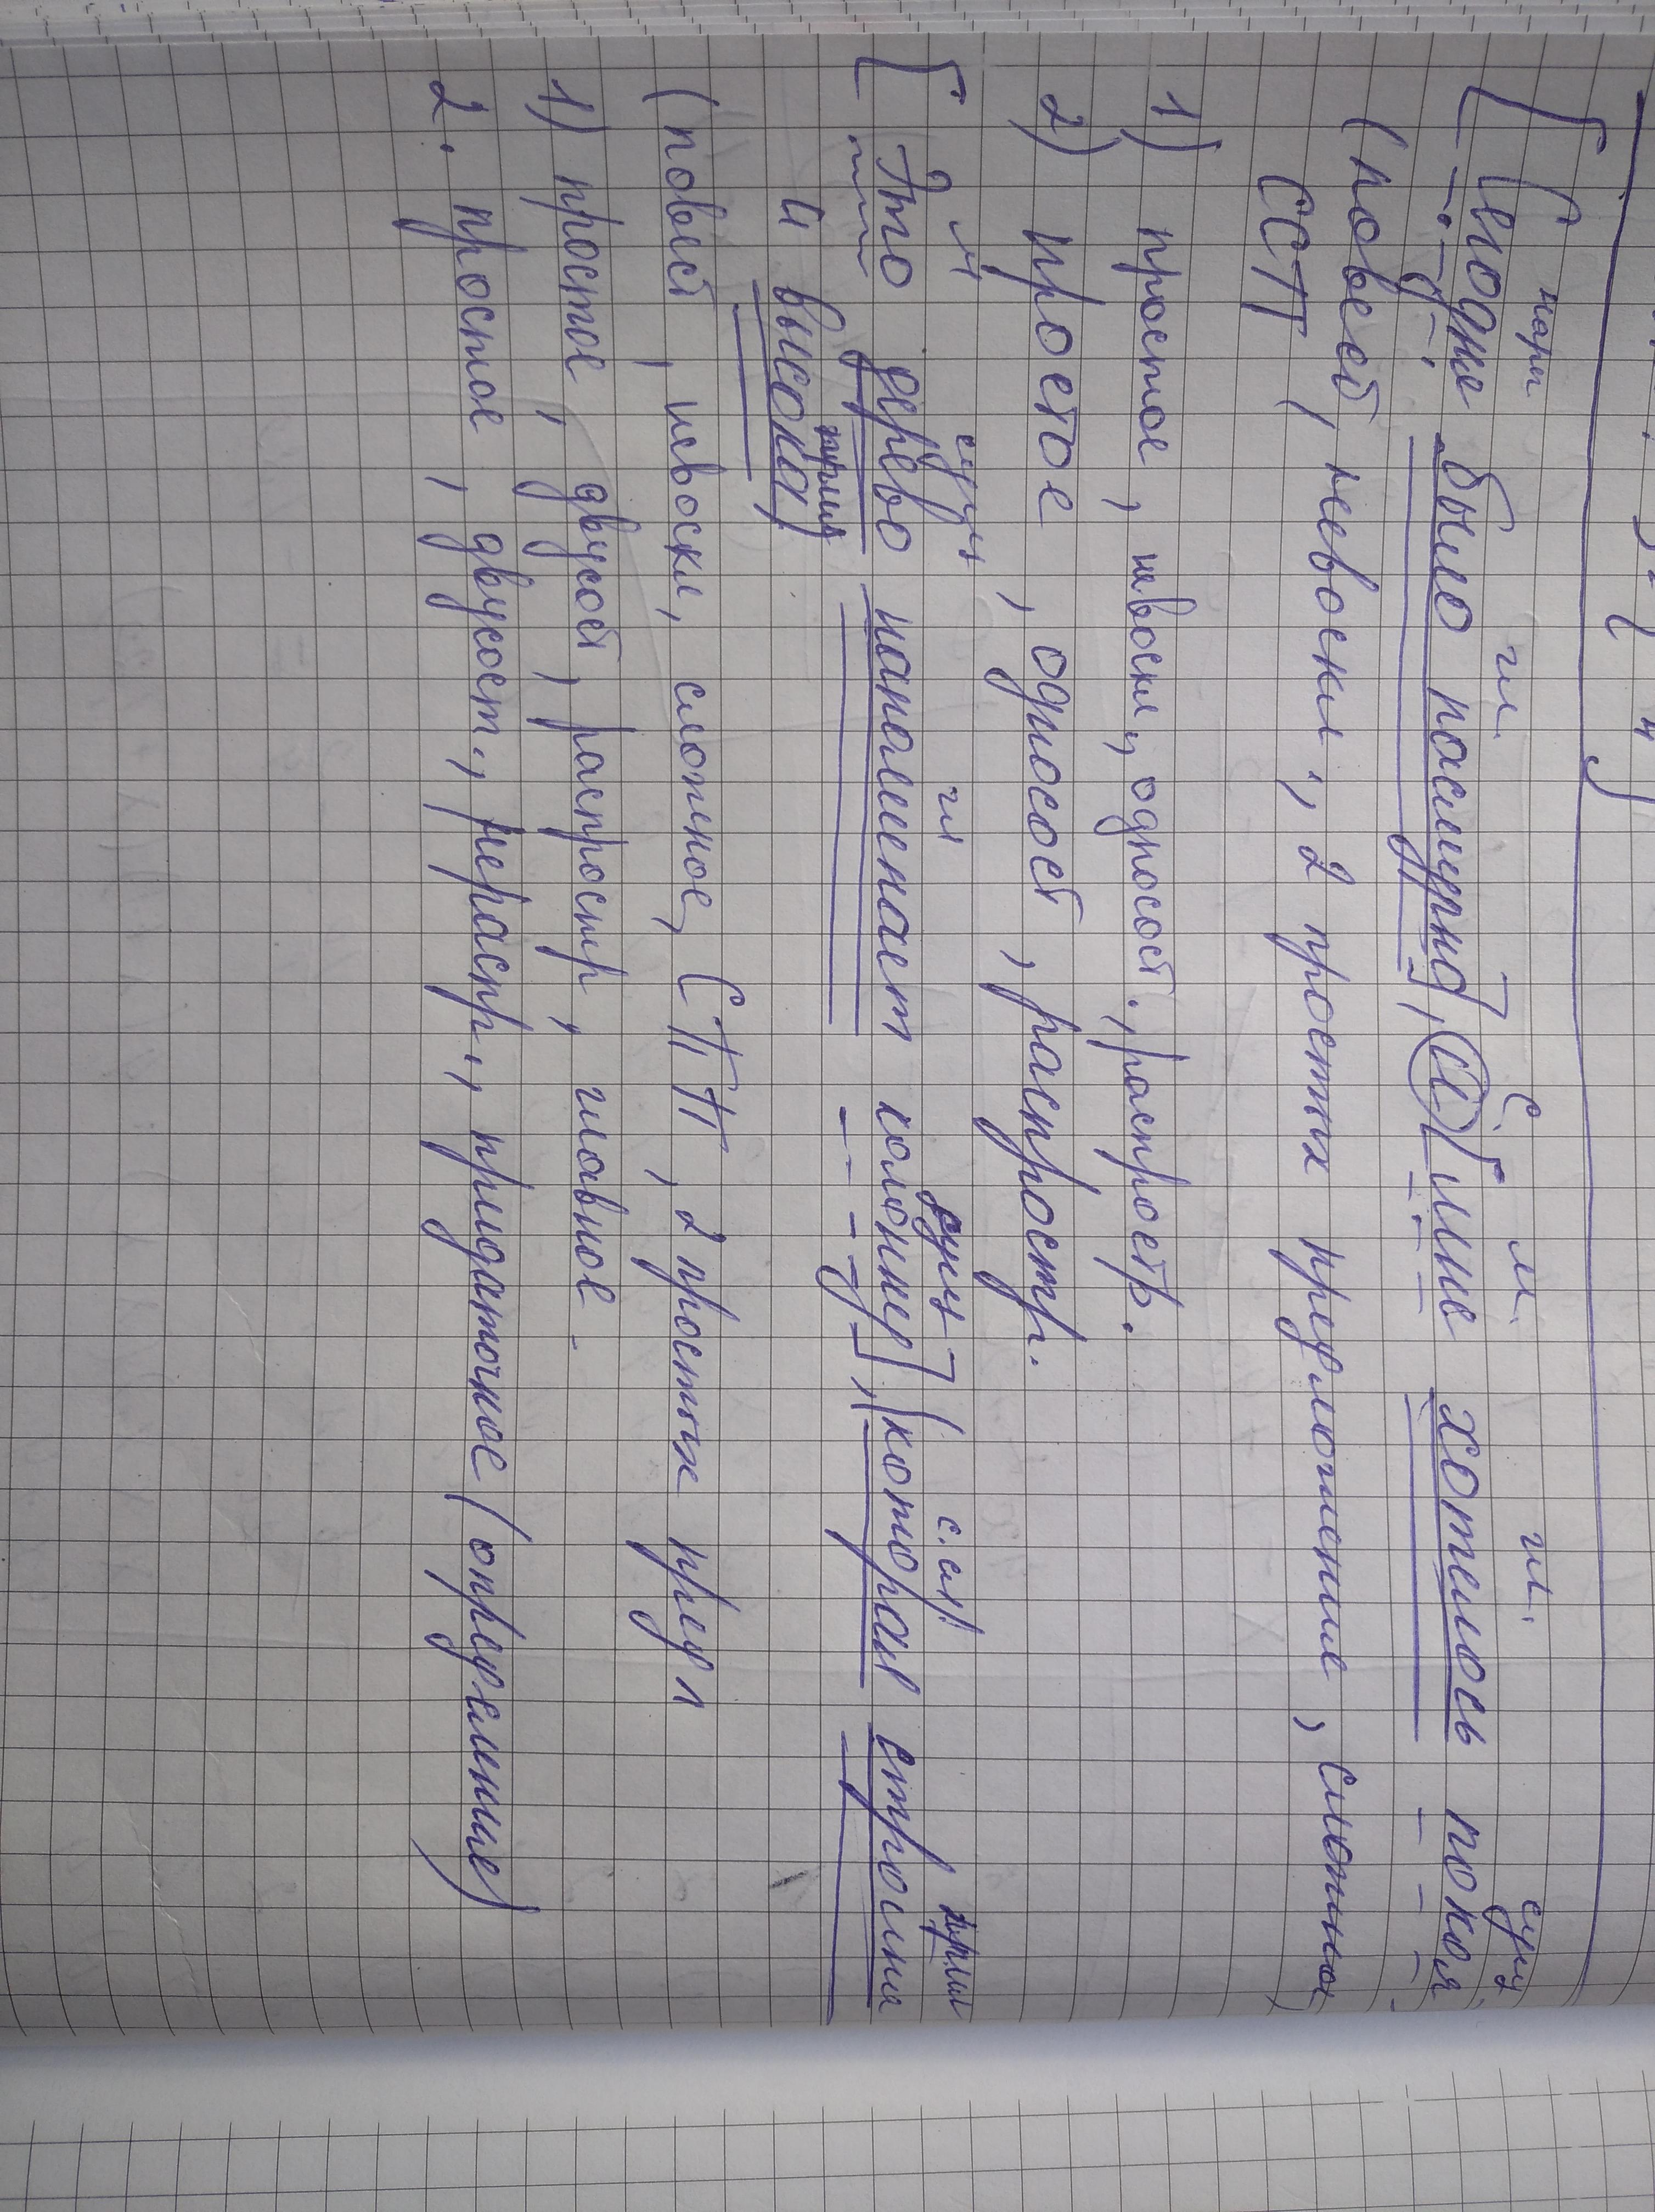 нар гл. с м. гл. сущ
[Сегодня было пасмурно], (и) [мне хотелось покоя
(повест, невоскл., 2 простых предложение, сложное)
ССП
1) простое, невоскл, односост., распростр.
2) простое, односост, распростр.
м сущ гл сущ с.сл. прил
[Это дерево напоминает колонну], (которая стройна
прил
и высока)
(повест, невоскл, сложное, СПП, 2 простых предл
1) простое, двусост, распростр, главное.
2. простое, двусост., нераспр., придаточное (определение)